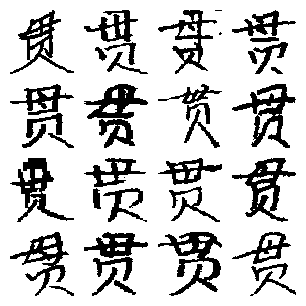 贯贯贯贯
贯贯贯贯
贯贯贯贯
贯贯贯贯